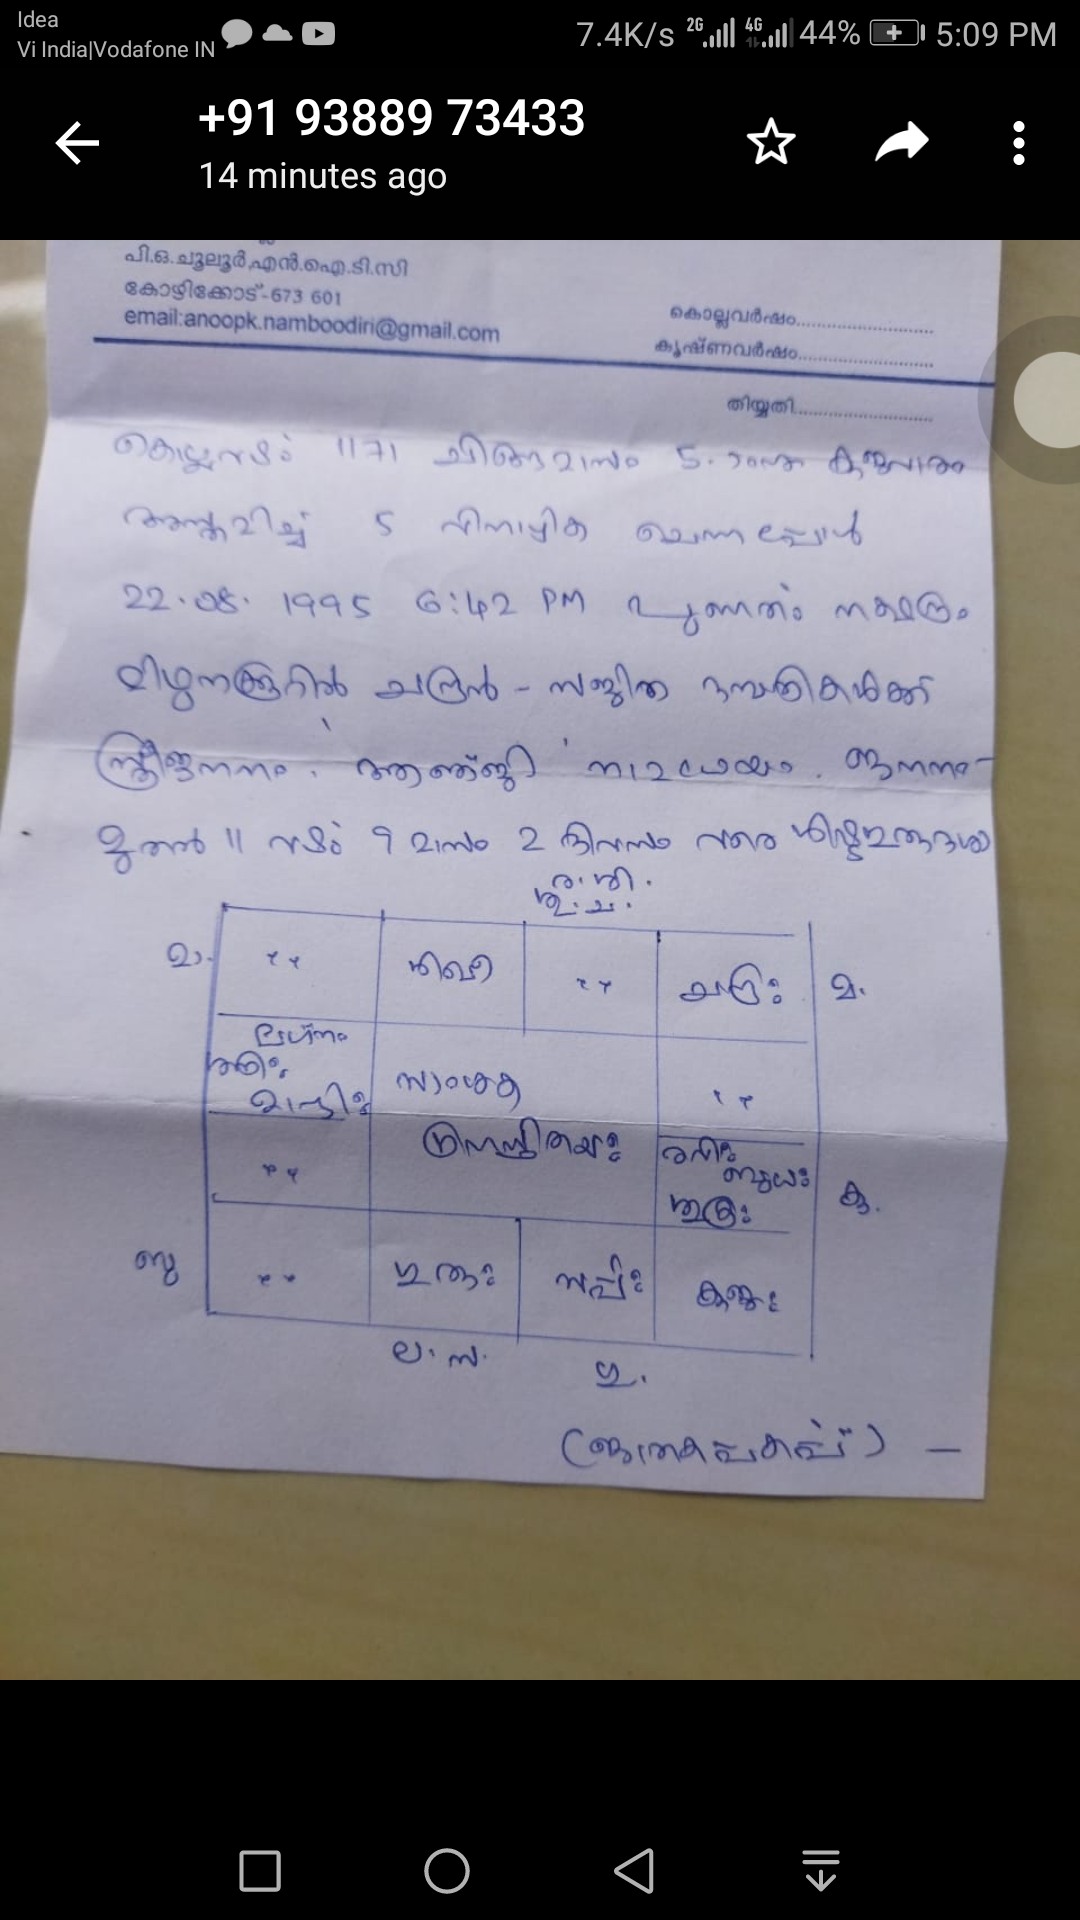 Idea
Vi India|Vodafone IN
7.4K/s 2G 4G 44% 5:09 PM
+91 93889 73433
14 minutes ago
പി.ഒ.ചൂലൂർ,എൻ.ഐ.ടി.സി
കോഴിക്കോട്-673 601
email:anoopk.namboodiri@gmail.com
കൊല്ലവർഷം
കൃഷ്ണവർഷം
തിയ്യതി
കൊല്ലവർഷം 1171 ചിങ്ങമാസം 5
അസ്തമിച്ച് 5 വിനാഴിക ചെന്നപ്പോൾ
22.08.1995 6:42 PM പുണർതം നക്ഷത്രം
മിഥുനക്കൂറിൽ ചന്ദ്രൻ - സജിത ദമ്പതികൾക്ക്
സ്ത്രീജനനം. നാമധേയം. ജനനം
മുതൽ 11 വർഷം 9 മാസം 2 ദിവസം വരെ
ര. ശി.
ശു. ച.
മാ. ശിഖീ ചന്ദ്രഃ മ.
ലഗ്നം
മാന്ദിഃ
രവിഃ
ബുധഃ
ശുക്രഃ കു.
ബു ഗുരുഃ സർപ്പിഃ കുജഃ
ല. സ. ഗു.